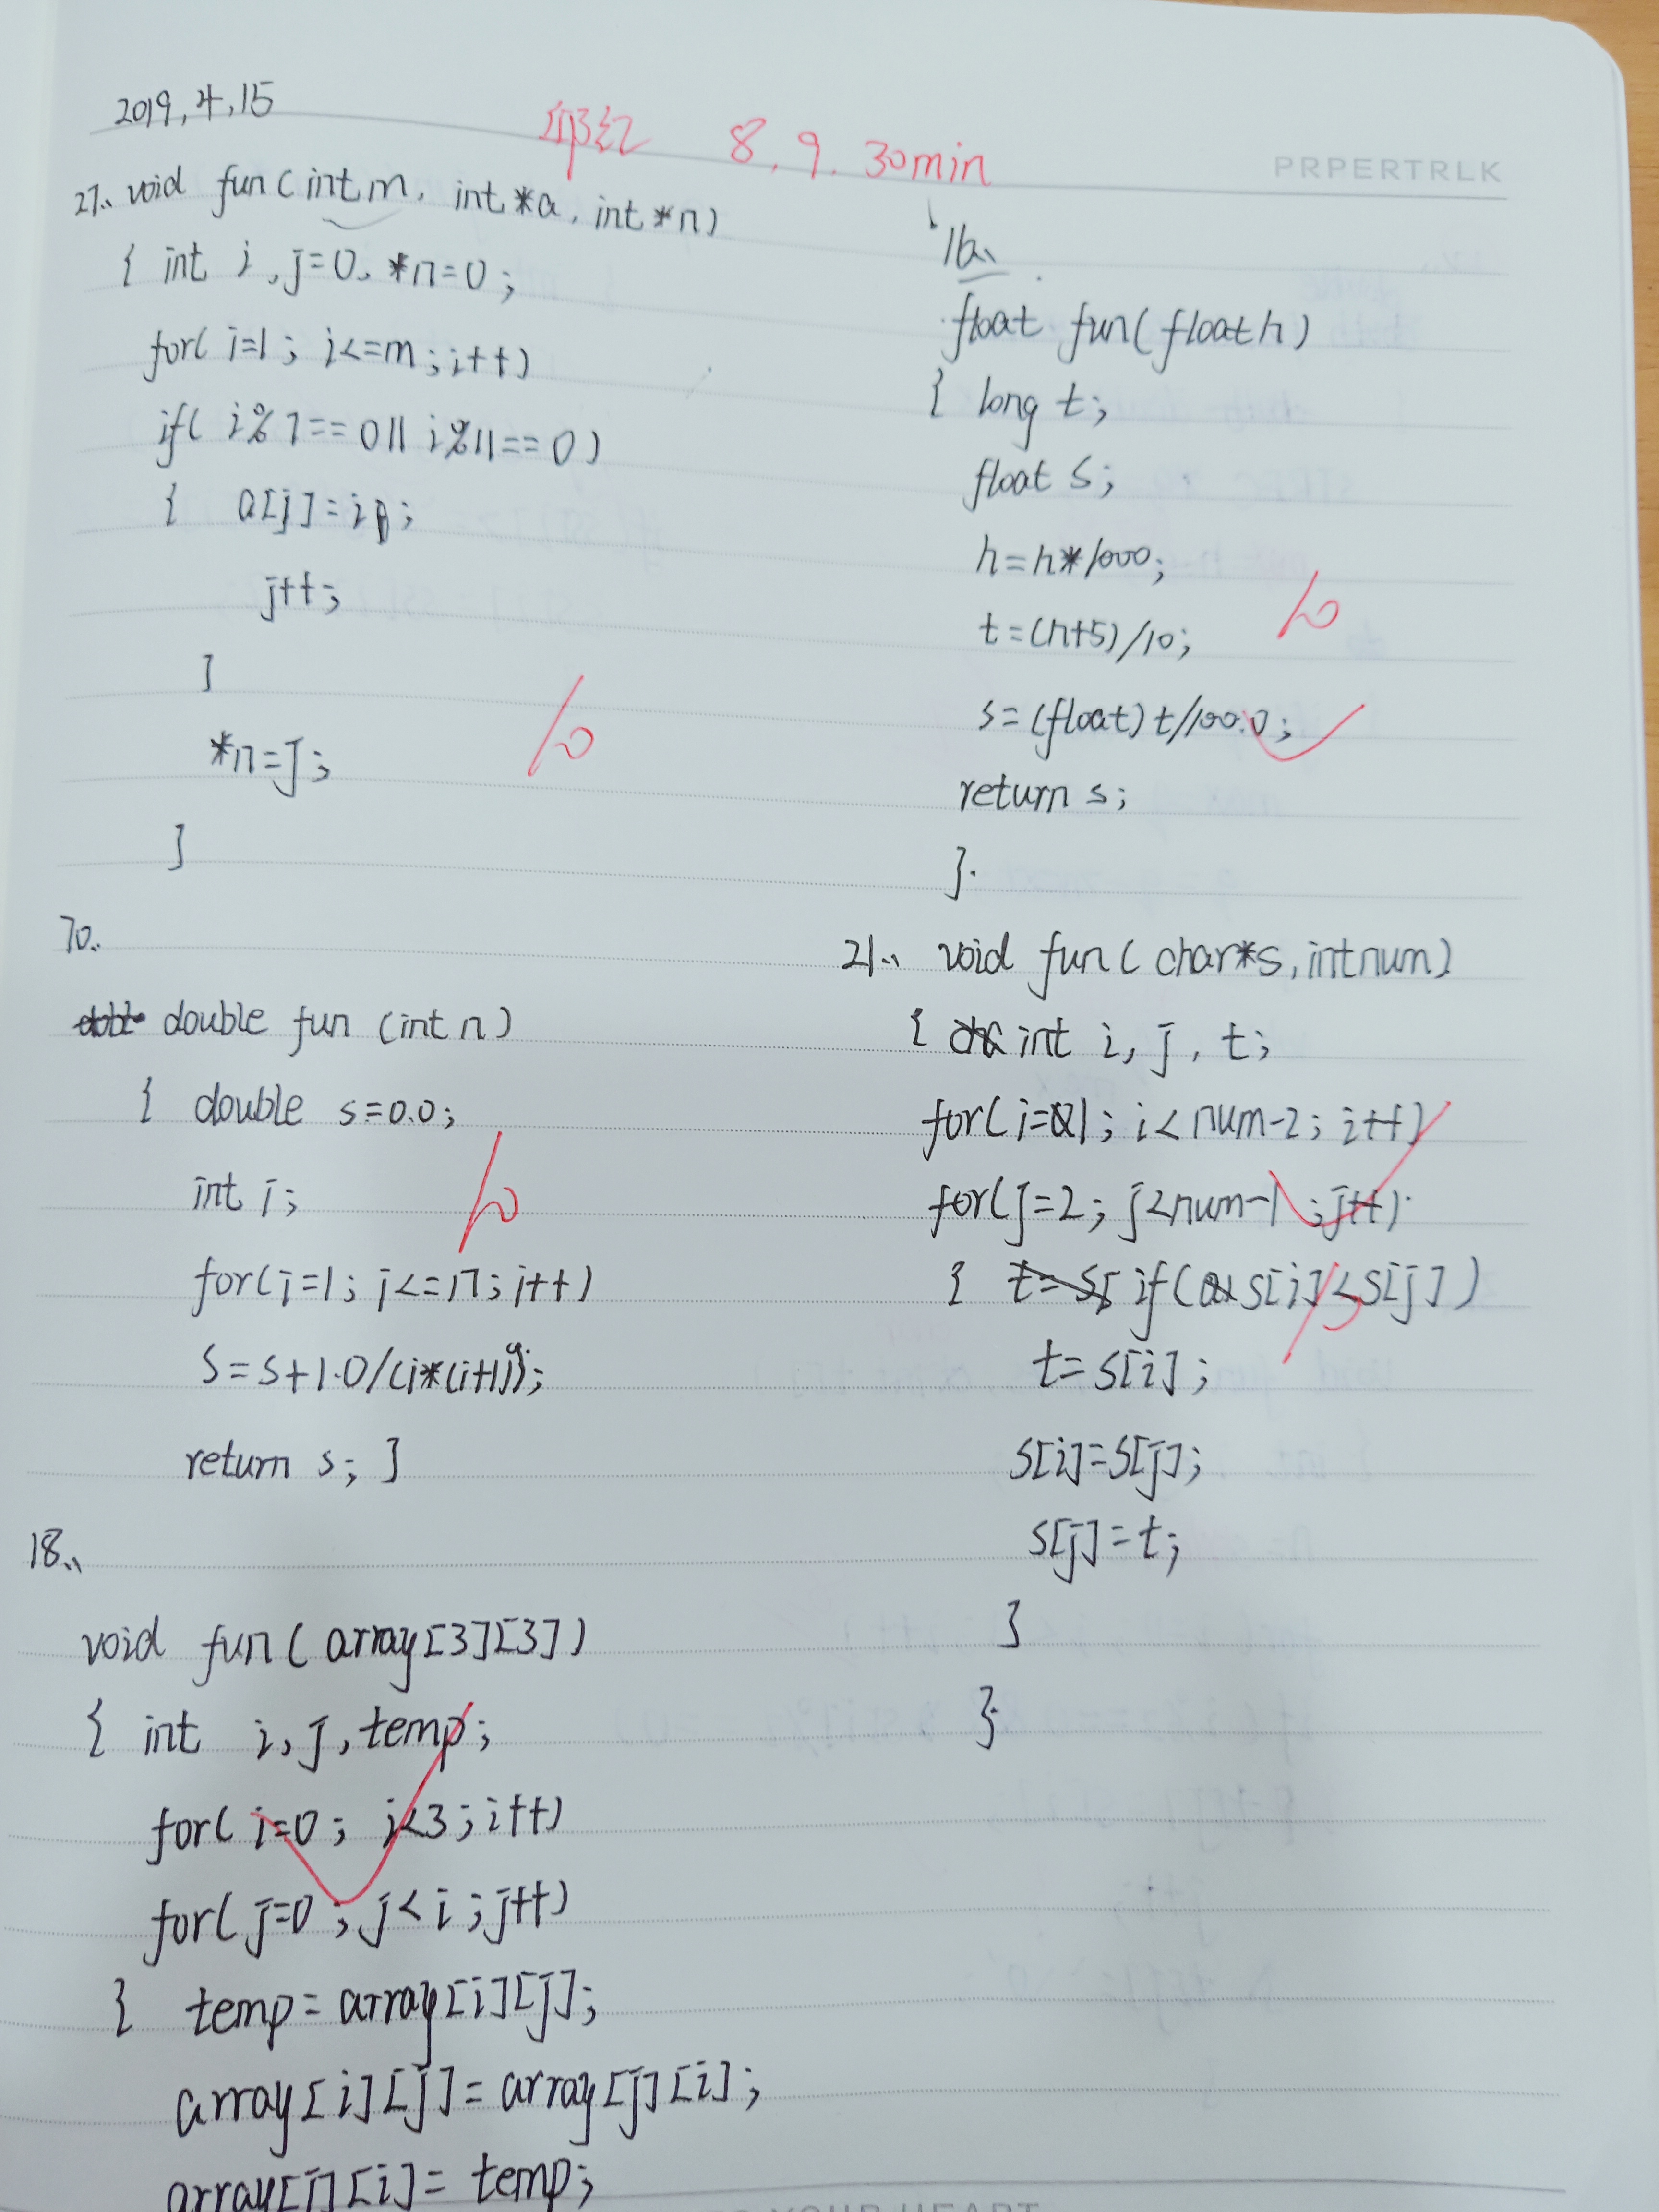 2019,4,15
8.9. 30min
PRPERTRLK
27. void fun(int m, int *a, int *n)
{ int i, j=0, *n=0;
for( i=1; i<=m; i++)
if( i%7==0|| i%11==0)
{ a[j]=i;
j++;
}
*n=j;
}
70.
double fun (int n)
{ double s=0.0;
int i;
for(i=1; i<=n; i++)
s=s+1.0/(i*(i+1));
return s; }
18.
void fun( array[3][3])
{ int i, j, temp;
for( i=0; i<3; i++)
for( j=0; j<i; j++)
{ temp=array[i][j];
array[i][j]=array[j][i];
array[j][i]= temp;
float fun(float h)
{ long t;
float s;
h=h*1000;
t=(h+5)/10;
s=(float)t/100.0;
return s;
}
10
21. void fun( char*s, int num)
{ int i, j, t;
for(i=1; i<num-2; i++)
for(j=2; j<num-1; j++)
{ if( s[i]<s[j])
t=s[i];
s[i]=s[j];
s[j]=t;
}
}
10
10